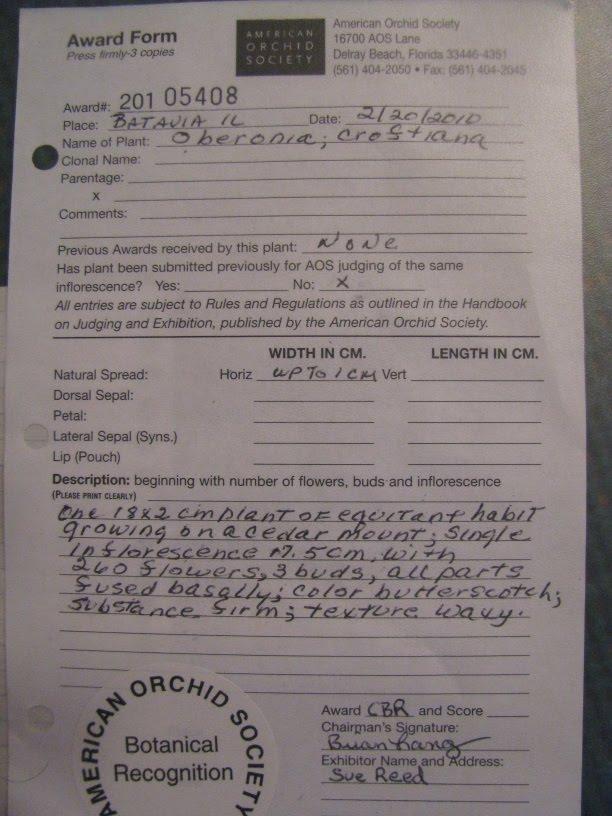 Award Form
Press firmly-3 copies
AMERICAN
ORCHID
SOCIETY
American Orchid Society
16700 AOS Lane
Delray Beach, Florida 33446-4351
(561) 404-2050 • Fax: (561) 404-2045
Award#: 201 05408
Place: BATAVIA IL Date: 2/20/2010
Name of Plant: Oberonia; crostiana
Clonal Name:
Parentage:
x
Comments:
Previous Awards received by this plant: NONe
Has plant been submitted previously for AOS judging of the same
inflorescence? Yes: No: X
All entries are subject to Rules and Regulations as outlined in the Handbook
on Judging and Exhibition, published by the American Orchid Society.
WIDTH IN CM. LENGTH IN CM.
Natural Spread: Horiz UP TO 1 CM Vert
Dorsal Sepal:
Petal:
Lateral Sepal (Syns.)
Lip (Pouch)
Description: beginning with number of flowers, buds and inflorescence
(PLEASE PRINT CLEARLY)
One 18x2 cm plant of equitant habit
growing on a cedar mount; single
inflorescence 17.5cm, with
260 flowers, 3 buds, all parts
fused basally; color butterscotch;
substance firm; texture waxy.
AMERICAN ORCHID SOCIETY
Botanical
Recognition
Award CBR and Score
Chairman's Signature:
Exhibitor Name and Address:
Sue Reed